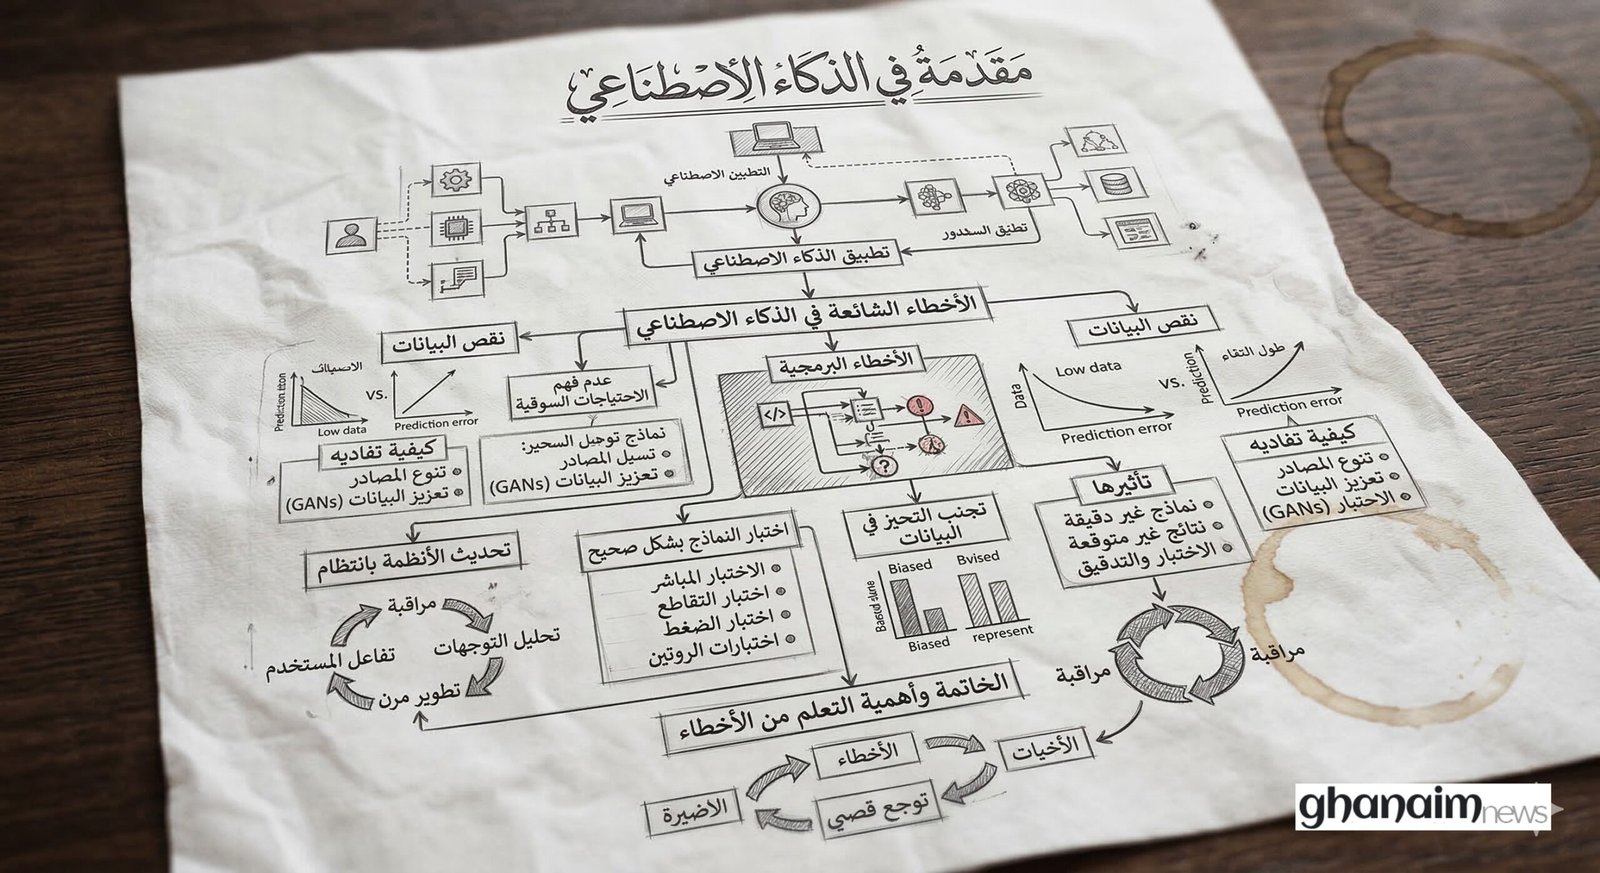 مَقَدَمَةُ فِي الذكَاءِ الِاصْطِنَاعِي
التطبين الاصطناعي
تطبيق الذكاء الاصطناعي
الأخطاء الشائعة في الذكاء الاصطناعي
نقص البيانات
VS.
Low data
Prediction error
كيفية تفاديه
تنوع المصادر
تعزيز البيانات (GANs)
عدم فهم
الاحتياجات السوقية
نماذج توهيل السحير:
تسيل المصادر
تعزيز البيانات (GANs)
الأخطاء البرمجية
</>
?
نقص البيانات
Data
Low data
Prediction error
VS.
Prediction
طول التقاء
Prediction error
كيفية تفاديه
تنوع المصادر
تعزيز البيانات
الاختبار (GANs)
تأثيرها
نماذج غير دقيقة
نتائج غير متوقعة
الاختبار والتدقيق
تجنب التحيز في
البيانات
Biased
Bvised
Biased
represent
اختبار النماذج بشكل صحيح
الاختبار المباشر
اختبار التقاطع
اختبار الضغط
اختبارات الروتين
تحديث الأنظمة بانتظام
مراقبة
تحليل التوجهات
تطوير مرن
تفاعل المستخدم
مراقبة
مراقبة
الخاتمة وأهمية التعلم من الأخطاء
الأخطاء
الأخيات
توجع قصي
الاضيرة
ghanaimnews